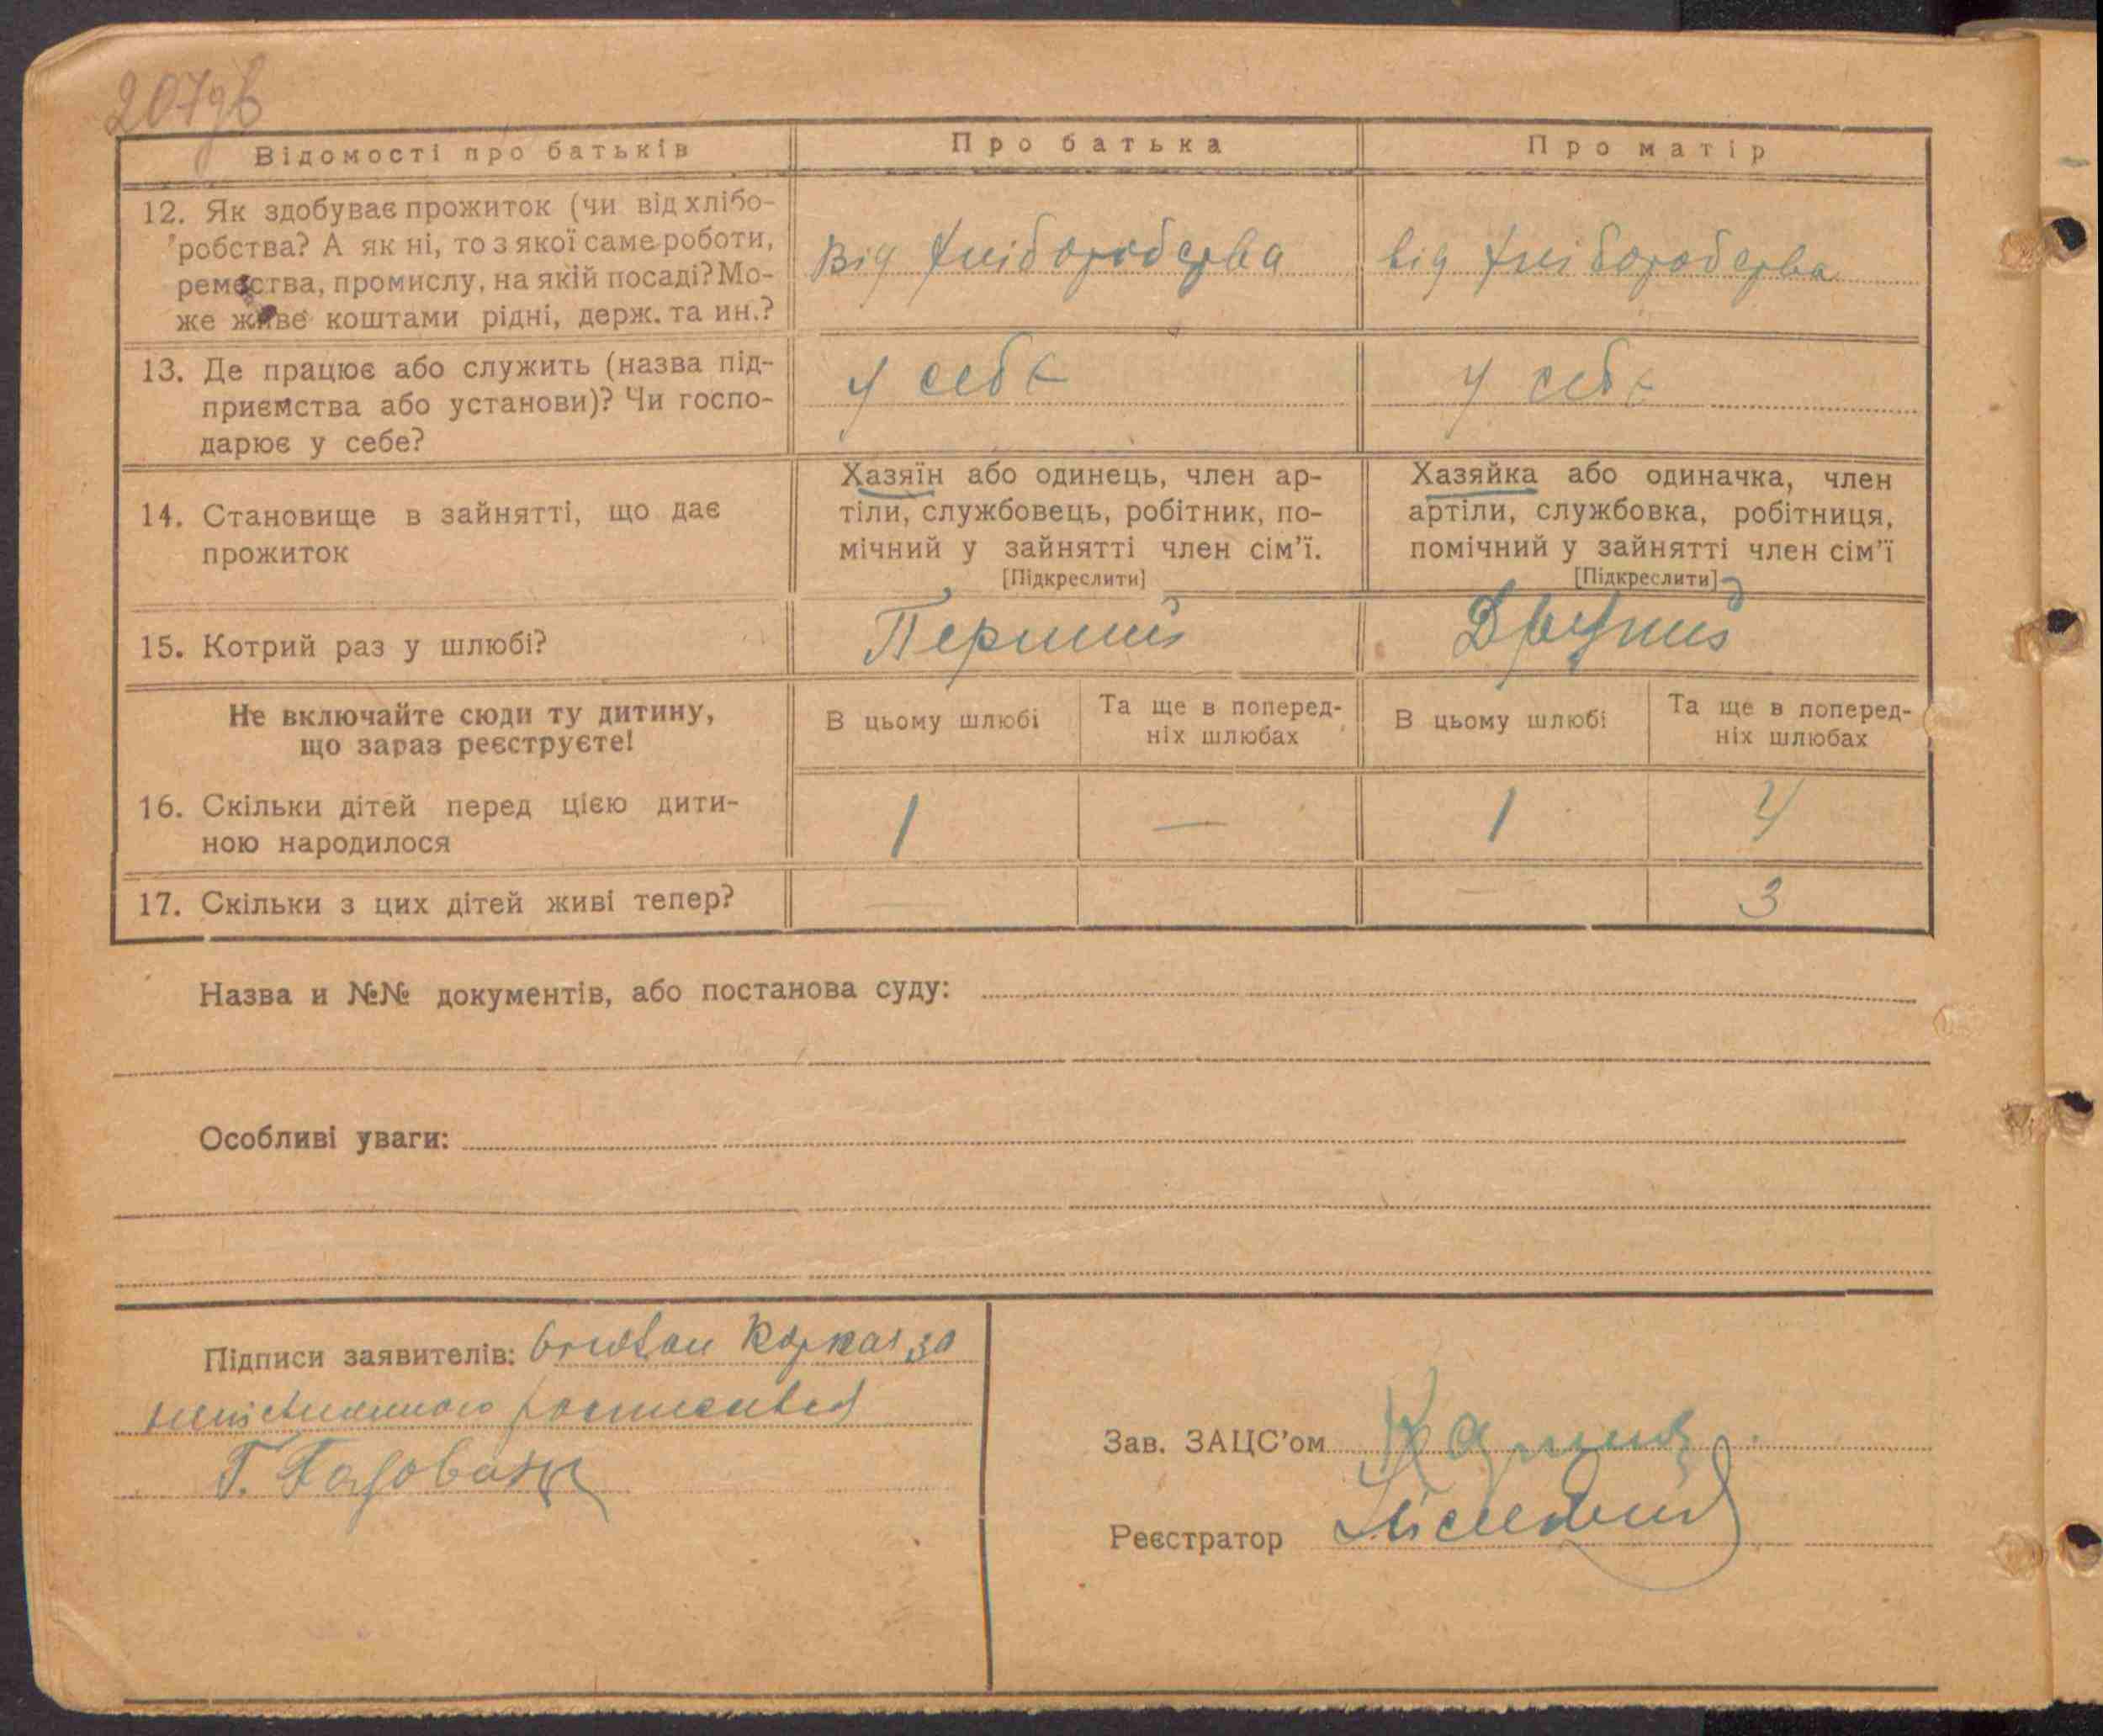 207зв
Відомості про батьків
Про батька
Про матір
12. Як здобуває прожиток (чи від хлібо-
робства? А як ні, то з якої саме роботи,
ремества, промислу, на якій посаді? Мо-
же живе коштами рідні, держ. та ин.?
Від хліборобства
від хліборобства
13. Де працює або служить (назва під-
приємства або установи)? Чи госпо-
дарює у себе?
У себе
У себе
14. Становище в зайнятті, що дає
прожиток
Хазяїн або одинець, член ар-
тіли, службовець, робітник, по-
мічний у зайнятті член сім'ї.
[Підкреслити]
Хазяйка або одиначка, член
артіли, службовка, робітниця,
помічний у зайнятті член сім'ї
[Підкреслити]
15. Котрий раз у шлюбі?
Перший
Другий
Не включайте сюди ту дитину,
що зараз реєструєте!
В цьому шлюбі
Та ще в поперед-
ніх шлюбах
В цьому шлюбі
Та ще в поперед-
ніх шлюбах
16. Скільки дітей перед цією дити-
ною народилося
1
—
1
4
17. Скільки з цих дітей живі тепер?
—
—
3
Назва и №№ документів, або постанова суду:
Особливі уваги:
Підписи заявителів: за
Г.
Зав. ЗАЦС'ом
Реєстратор